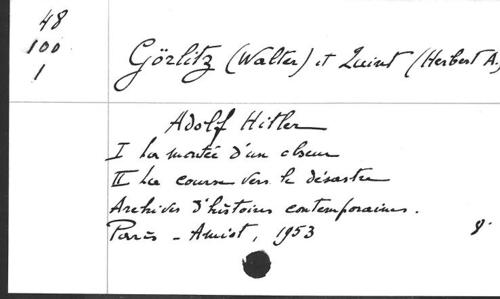 48
100
1
Görlitz (Walter) et Quint (Herbert A.)
Adolf Hitler
I La montée d'un obscur
II La course vers le désastre
Archives d'histoire contemporaine.
Paris - Amiot, 1953